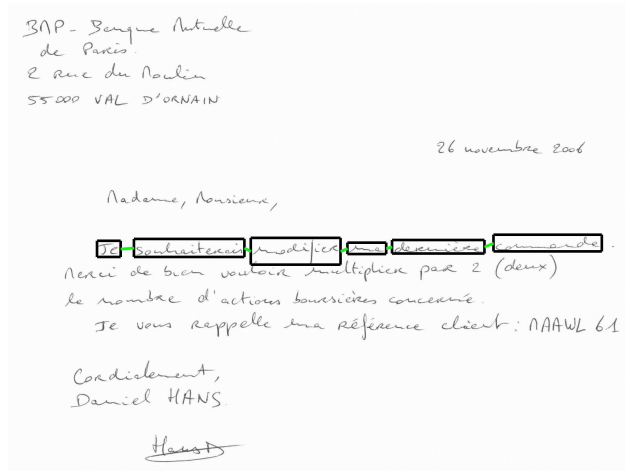 BMP - Banque Mutuelle
de Paris.
2 rue du Moulin
55000 VAL D'ORNAIN
26 novembre 2006
Madame, Monsieur,
Je souhaiterais modifier ma dernière commande.
Merci de bien vouloir multiplier par 2 (deux)
le nombre d'actions boursières concerné.
Je vous rappelle ma référence client : MAAWL 61
Cordialement,
Daniel HANS.
Hans D